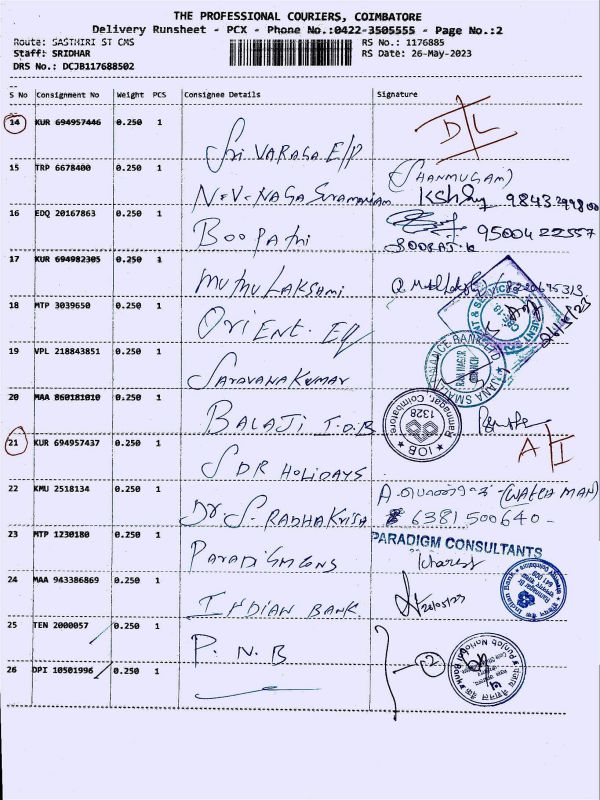 THE PROFESSIONAL COURIERS, COIMBATORE
Delivery Runsheet - PCX - Phone No.:0422-3505555 - Page No.:2
Route: SASTHIRI ST CMS RS No.: 1176885
Staff: SRIDHAR RS Date: 26-May-2023
DRS No.: DCJB117688502
S No Consignment No Weight PCS Consignee Details Signature
14 KUR 694957446 0.250 1 Sri VARAGA E/P D/L
15 TRP 6678400 0.250 1 N.V. NAGA Suramaniam (SHANMUGAM)
16 EDQ 20167863 0.250 1 BOOPATHI 9500422557
17 KUR 694982305 0.250 1 MUTHU LAKSHMI
18 MTP 3039650 0.250 1 ORIENT. EQ
19 VPL 218843851 0.250 1 SARAVANAKUMAR
20 MAA 860181010 0.250 1 BALAJI I.O.B
IOB
1328
Ramnagar, Coimbatore
21 KUR 694957437 0.250 1 SDR HOLIDAYS A/I
22 KMU 2518134 0.250 1 Dr. S. RADHAKRISHNA (WATCH MAN)
6381500640
23 MTP 1230180 0.250 1 PARADIGM CONS PARADIGM CONSULTANTS
24 MAA 943386869 0.250 1 INDIAN BANK 26/05/23
Indian Bank
25 TEN 2000057 0.250 1 P.N.B
26 DPI 10501996 0.250 1 2